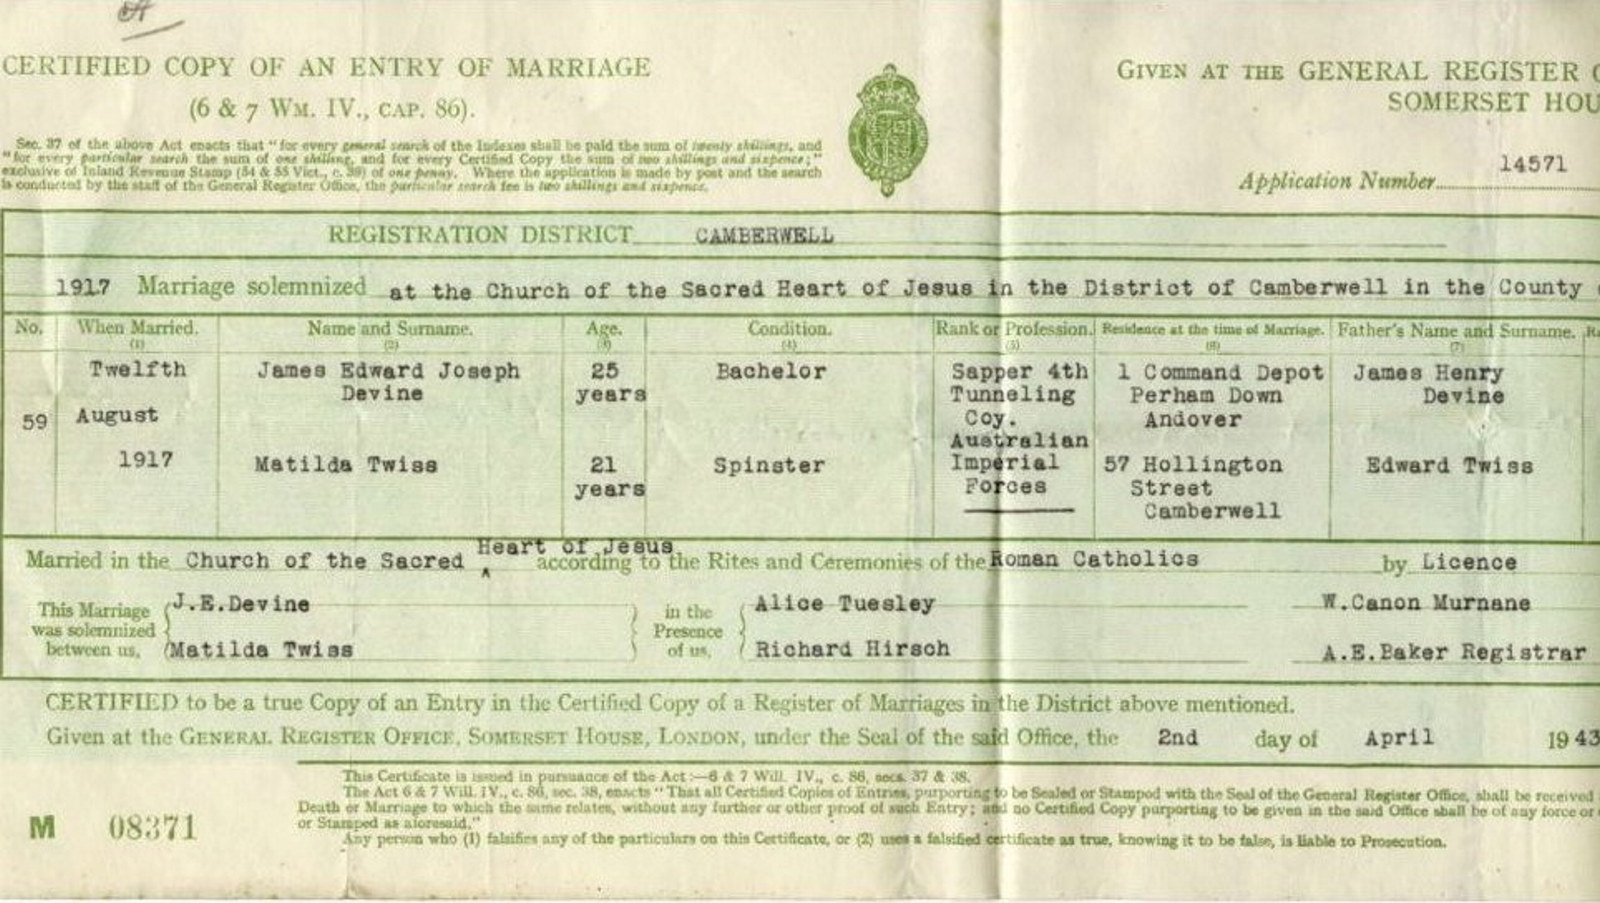 CERTIFIED COPY OF AN ENTRY OF MARRIAGE
(6 & 7 WM. IV., CAP. 86).
Sec. 37 of the above Act enacts that "for every general search of the Indexes shall be paid the sum of twenty shillings, and
"for every particular search the sum of one shilling, and for every Certified Copy the sum of two shillings and sixpence;"
exclusive of Inland Revenue Stamp (54 & 55 Vict., c. 39) of one penny. Where the application is made by post and the search
is conducted by the staff of the General Register Office, the particular search fee is two shillings and sixpence.
GIVEN AT THE GENERAL REGISTER
SOMERSET HOU
Application Number 14571
REGISTRATION DISTRICT CAMBERWELL
1917 Marriage solemnized at the Church of the Sacred Heart of Jesus in the District of Camberwell in the County
No. When Married. Name and Surname. Age. Condition. Rank or Profession. Residence at the time of Marriage. Father's Name and Surname.
(1) (2) (3) (4) (5) (6) (7)
Twelfth James Edward Joseph 25 Bachelor Sapper 4th 1 Command Depot James Henry
Devine years Tunneling Perham Down Devine
59 August Coy. Andover
Australian
1917 Matilda Twiss 21 Spinster Imperial 57 Hollington Edward Twiss
years Forces Street
Camberwell
Married in the Church of the Sacred Heart of Jesus according to the Rites and Ceremonies of the Roman Catholics by Licence
This Marriage was solemnized between us,
J.E.Devine
Matilda Twiss
in the Presence of us,
Alice Tuesley
Richard Hirsch
W.Canon Murnane
A.E.Baker Registrar
CERTIFIED to be a true Copy of an Entry in the Certified Copy of a Register of Marriages in the District above mentioned.
Given at the GENERAL REGISTER OFFICE, SOMERSET HOUSE, LONDON, under the Seal of the said Office, the 2nd day of April 1943
This Certificate is issued in pursuance of the Act :—6 & 7 Will. IV., c. 86, secs. 37 & 38.
The Act 6 & 7 Will. IV., c. 86, sec. 38, enacts "That all Certified Copies of Entries, purporting to be Sealed or Stamped with the Seal of the General Register Office, shall be received
Death or Marriage to which the same relates, without any further or other proof of such Entry; and no Certified Copy purporting to be given in the said Office shall be of any force or
or Stamped as aforesaid."
Any person who (1) falsifies any of the particulars on this Certificate, or (2) uses a falsified certificate as true, knowing it to be false, is liable to Prosecution.
M 08371